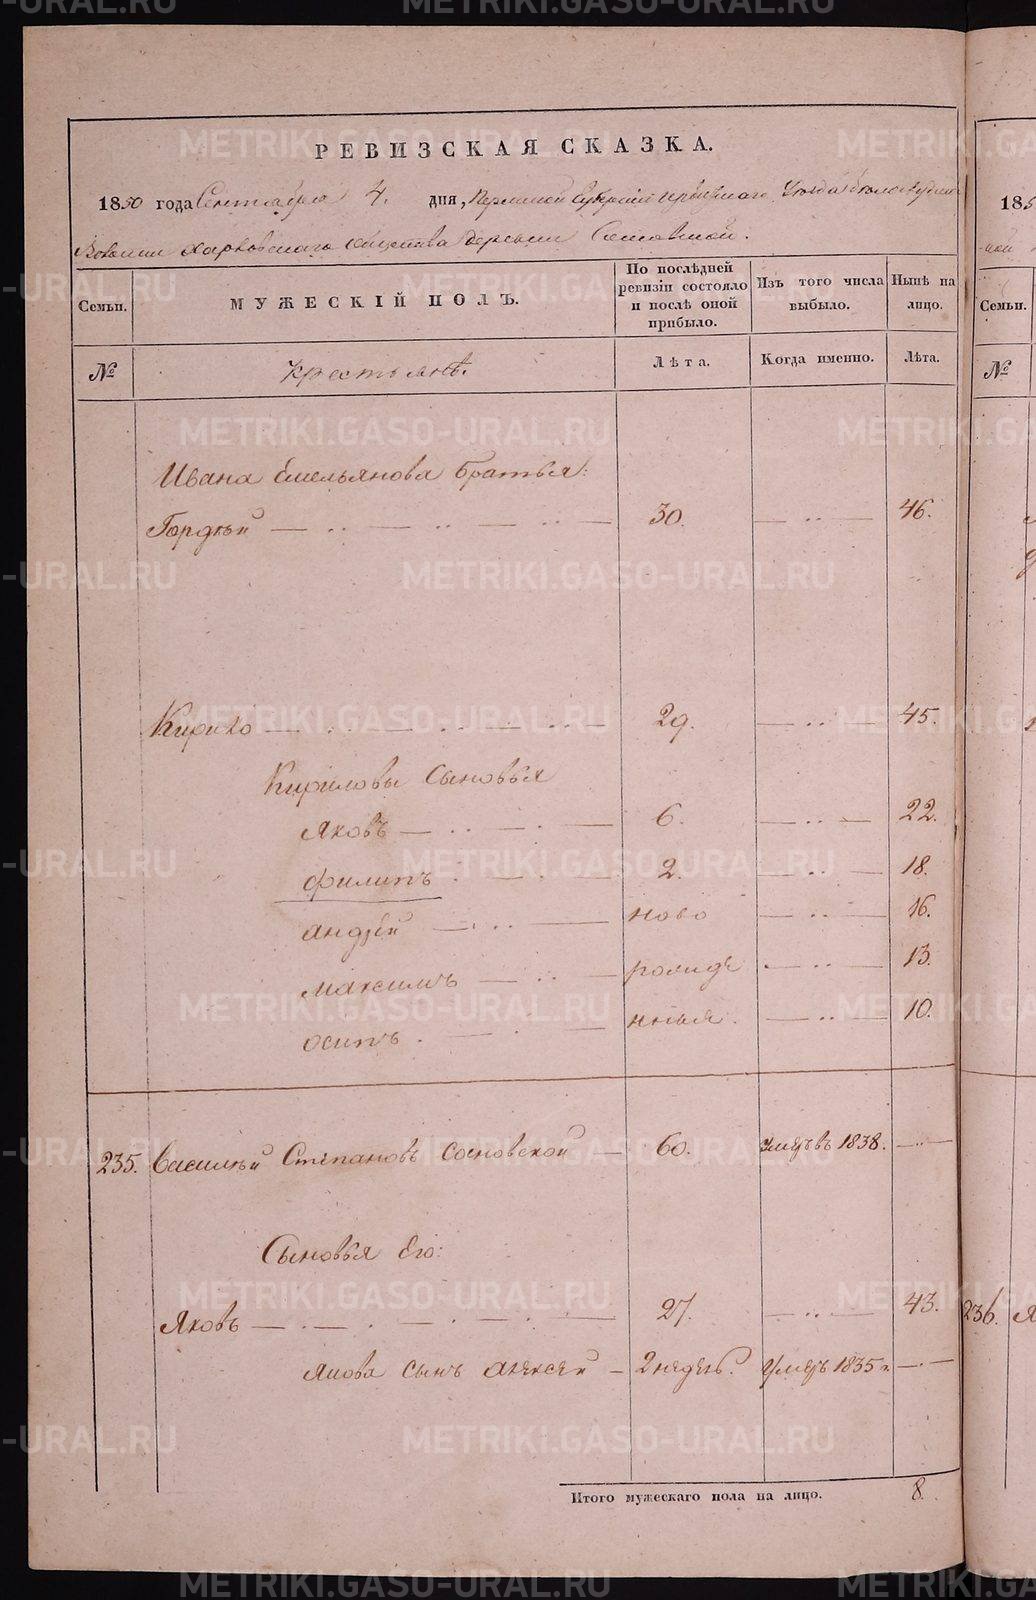 РЕВИЗСКАЯ СКАЗКА.
1850 года Сентября 4. дня, Пермской Губернии Ирбитского Уезда Белослудской
Волости Харловского общества деревни Сосновской.
Семьи. МУЖЕСКІЙ ПОЛЪ. По послѣдней ревизіи состояло и послѣ оной прибыло. Изъ того числа выбыло. Нынѣ на лицо.
№ Крестьянѣ. Лѣта. Когда именно. Лѣта.
Ивана Емельянова Братья:
Гордѣй 30. 46.
Кирило 29. 45.
Кириловы Сыновья
Яковъ 6. 22.
Филипъ 2. 18.
Андрей ново 16.
Максимъ рожде 13.
Осипъ нныя. 10.
235. Василѣй Степановъ Сосновской 60. Умеръ въ 1838.
Сыновья Его:
Яковъ 27. 43.
Якова сынъ Алексей 2 недель. Умеръ 1835
Итого мужескаго пола на лицо. 8.
185
Семьи.
№
236. Я
METRIKI.GASO-URAL.RU